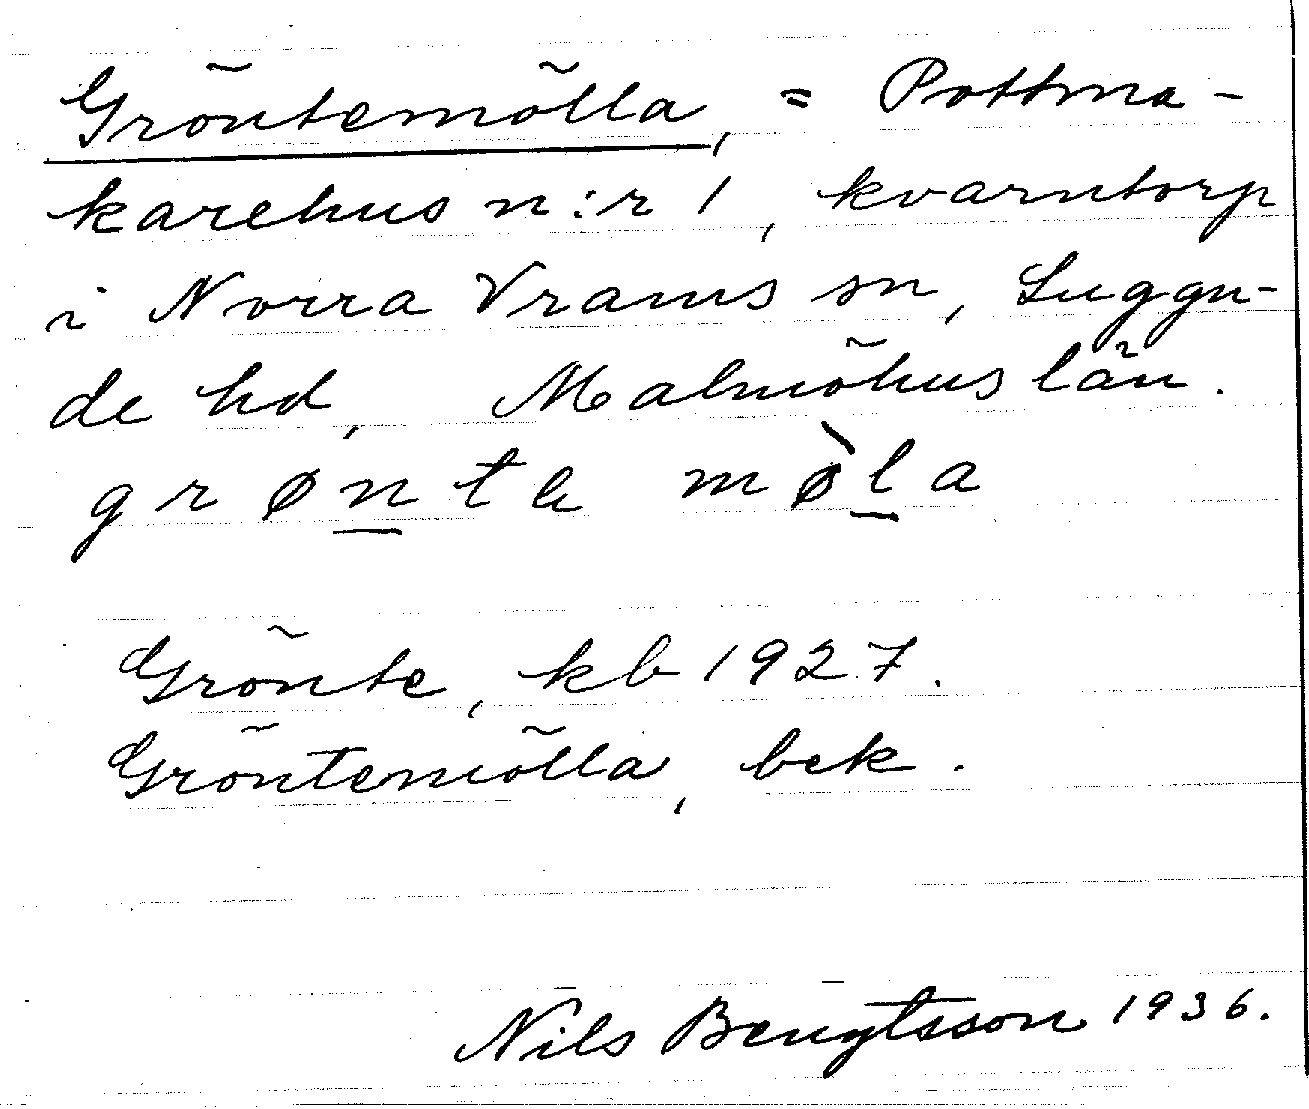 Gröntemölla, = Pottma-
karehus n:r 1, kvarntorp
i Norra Vrams sn, Luggu-
de hd, Malmöhus län.
grønta mø̀la
Grönte, kb 1927.
Gröntemölla, bek.
Nils Bengtsson 1936.